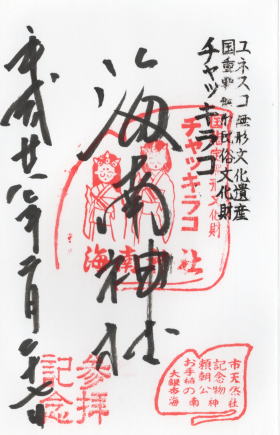 ユネスコ無形文化遺産
国重要無形民俗文化財
チャッキラコ
海南神社
平成廿八年
国指定重要無形文化財
チャッキラコ
海南神社
参拝
記念
市天然
記念物
頼朝公
お手植の
大銀杏
海南神社